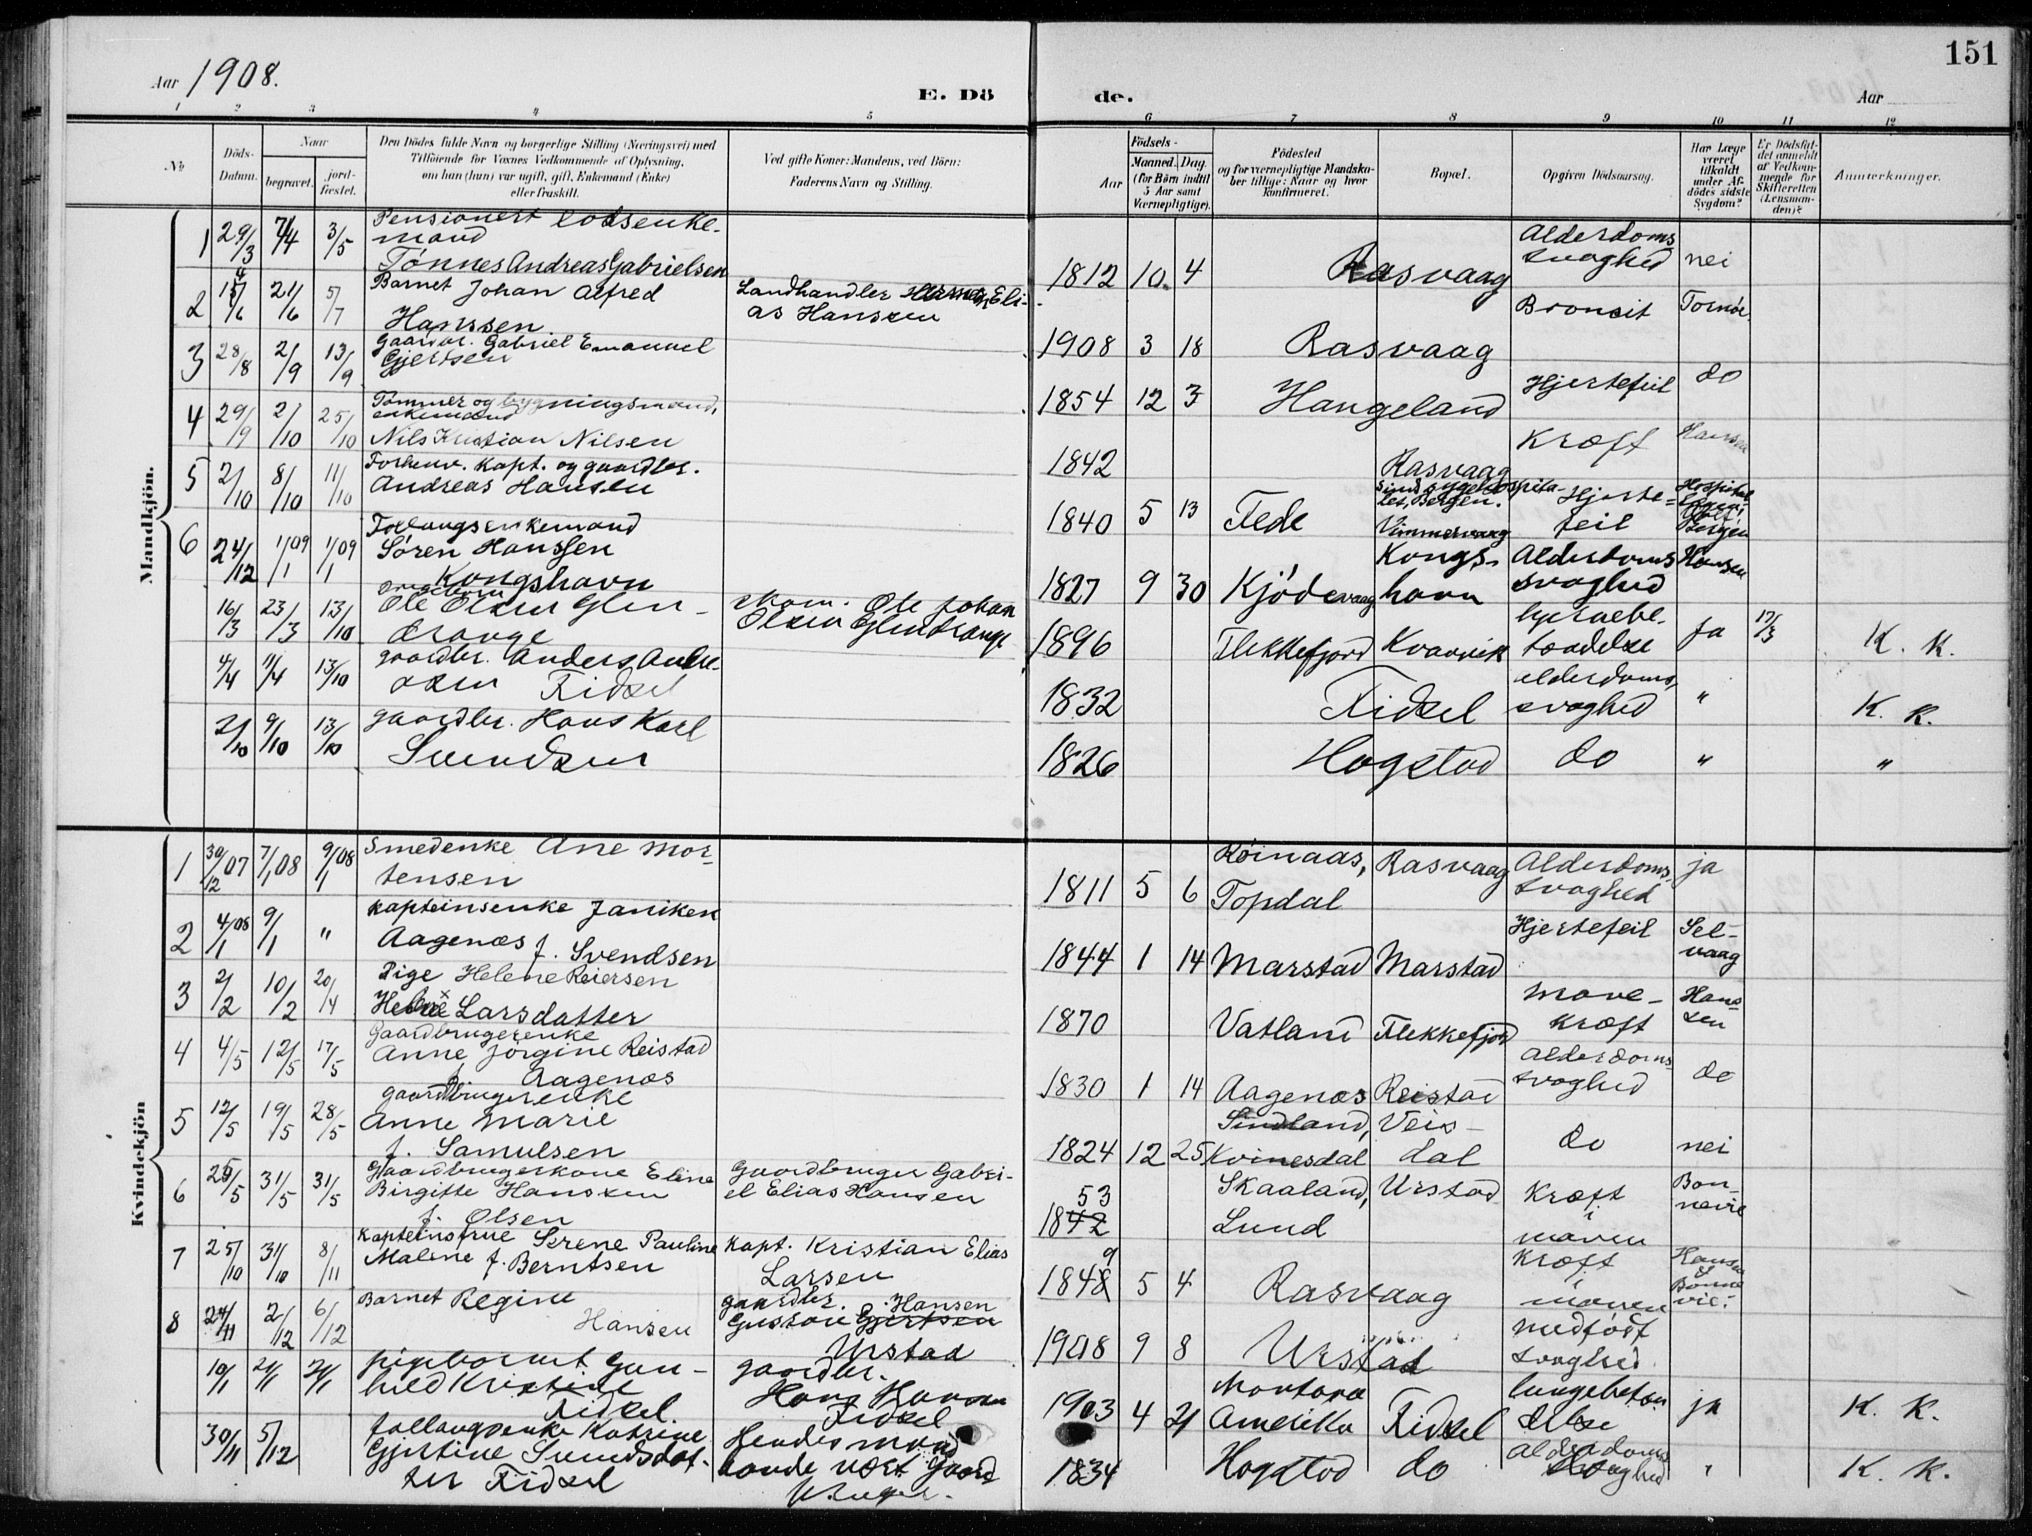 Aar 1908.
E. Dö
de.
Aar
151
1 2 3 4 5 6 7 8 9 10 11 12
No
Döds-
Datum.
Naar
begravet.
jord-
fæstet.
Den Dödes fulde Navn og borgerlige Stilling (Næringsvei) med
Tilföiende for Voxnes Vedkommende af Oplysning,
om han (hun) var ugift, gift, Enkemand (Enke)
eller fraskilt.
Ved gifte Koner: Mandens, ved Börn:
Faderens Navn og Stilling.
Aar
Födsels-
Maaned. Dag.
(for Börn indtil
5 Aar samt
Værnepligtige).
Födested
og for værnepligtige Mandska-
ber tillige: Naar og hvor
konfirmeret.
Bopæl.
Opgiven Dödsaarsag.
Har Læge
været
tilkaldt
under Af-
dödes sidste
Sygdom?
Er Dödsfal-
det anmeldt
af Vedkom-
mende for
Skifteretten
(Lensman-
den)?
Anmerkninger.
Mandkjön.
1 29/3 7/4 3/5 Pensionert lodsenke-
mand
Tønnes Andreas Gabrielsen
1812 10 4 Rasvaag Alderdoms
svaghed nei
2 15/6 21/6 5/7 Barnet Johan Alfred
Hanssen
Landhandler Eli-
as Hanssen
1908 3 18 Rasvaag Broncit Tornøe
3 28/8 2/9 13/9 Gaardbr. Gabriel Emanuel
Gjertsen
1854 12 3 Hangeland Hjertefeil do
4 29/9 2/10 25/10 Tømmer og bygningsmand,
enkemand
Nils Kristian Nilsen
1842 Rasvaag Kræft Hansen
5 2/10 8/10 11/10 Forhenv. kapt. og gaardbr.
Andreas Hansen
1840 5 13 Fede Sindssygehospita-
let, Bergen.
Vimmervaag Hjerte-
feil Hospital
Bergen
6 24/12 1/1 09 1/1 09 Forlangsenkemand
Søren Hanssen
Kongshavn
1827 9 30 Kjødevaag Kongs-
havn Alderdoms
svaghed Hansen
16/3 23/3 13/10 ungdom
Ole Olsen Glen-
drange
skom. Ole Johan
Olsen Glendrange
1896 Flekkefjord Kvanvik
tændelse ja 17/3 K. K.
4/4 11/4 13/10 gaardbr. Anders Andre-
asen Fidsel
1832 Fidsel alderdoms
svaghed " K. K.
2/10 9/10 13/10 gaardbr. Hans Karl
Svendsen
1826 Hogstad do " "
Kvindekjön
1 30/12 07 7/1 08 9/1 08 Smedenke Ane Mor-
tensen
1811 5 6 Røinaas,
Topdal Rasvaag Alderdoms
svaghed ja
2 4/1 08 9/1 " Kapteinsenke Janiken
Aagenæs f. Svendsen
1844 1 14 Marstad Marstad Hjertefeil Sel-
vaag
3 2/2 10/2 20/4 Pige Helene Reiersen
Helene Larsdatter
1870 Vatland Flekkefjord Mave-
kræft Han-
sen
4 4/5 12/5 17/5 Gaardbrugerenke
Anne Jørgine Reistad
f. Aagenæs
1830 1 14 Aagenæs Reistad Alderdoms-
svaghed do
5 12/5 19/5 28/5 gaardbrugerenke
Anne Marie
f. Samulsen
1824 12 25 Sindland,
Kvinesdal Veis-
dal do nei
6 25/5 31/5 31/5 Gaardbrugerkone Eline
Birgitte Hanssen
f. Olsen
Gaardbruger Gabri-
el Elias Hansen
53
1842 Skaaland,
Lund Urstad Kræft
i
maven Bon-
nevie
7 25/10 31/10 8/11 Kapteinsfrue Serene Pauline
Malene f. Berntsen
Kapt. Kristian Elias
Larsen
9
1848 5 4 Rasvaag Kræft
i
maven Hansen
&
Bonne
vie.
8 24/11 2/12 6/12 Barnet Regine
Hansen
gaardbr. Hansen
Gustav Gjertsen
Urstad
1908 9 8 Urstad medfødt
svaghed
10/1 21/1 21/1 pigebarnet Gun-
hild Kristine
Fidsel.
gaardbr.
Hans Hansen
Fidsel
1903 4 21 Montana
Amerika Fidsel lungebetæn
delse ja K. K.
30/11 5/12 follaugsenke Katrine
Gjertine Svendsdat-
ter Fidsel
Hendes mand
havde vært Gaard
bruger.
1834 Hogstad do alderdoms
svaghed " K. K.